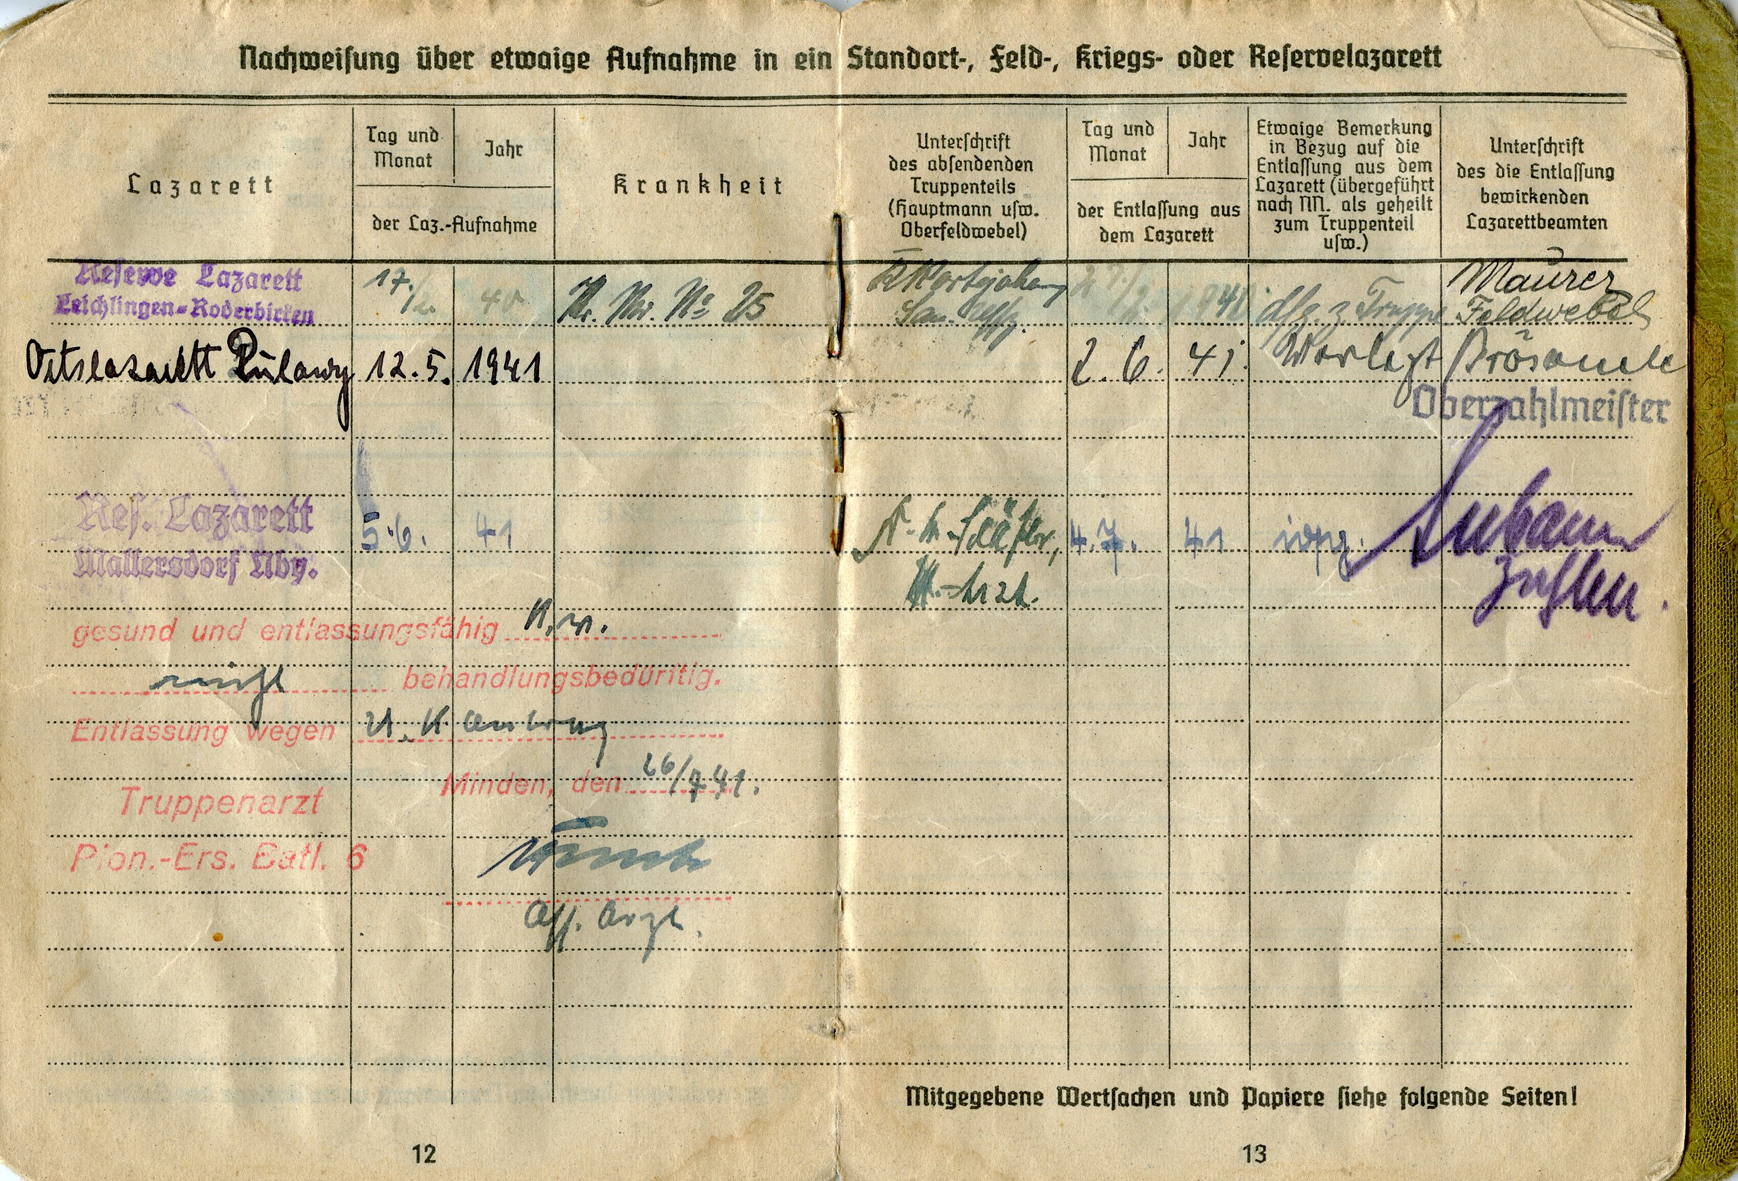 Nachweisung über etwaige Aufnahme in ein Standort-, Feld-, Kriegs- oder Reservelazarett
Lazarett
Tag und
Monat
Jahr
der Laz.-Aufnahme
Krankheit
Unterschrift
des absendenden
Truppenteils
(Hauptmann usw.
Oberfeldwebel)
Tag und
Monat
Jahr
der Entlassung aus
dem Lazarett
Etwaige Bemerkung
in Bezug auf die
Entlassung aus dem
Lazarett (übergeführt
nach NN. als geheilt
zum Truppenteil
usw.)
Unterschrift
des die Entlassung
bewirkenden
Lazarettbeamten
Reserve Lazarett
Leichlingen-Roderbirken
17. 40 Nr. 25
Maurer
Feldwebel
Ortslazarett Pulawy 12.5. 1941 2.6. 41. verlegt
Oberzahlmeister
Res. Lazarett
Mallersdorf Nby.
5.6. 41 4.7. 41
gesund und entlassungsfähig
nicht behandlungsbedürftig.
Entlassung wegen
Minden, den 26/7 41.
Truppenarzt
Pion.-Ers. Batl. 6
Ass. Arzt.
Mitgegebene Wertsachen und Papiere siehe folgende Seiten!
12
13